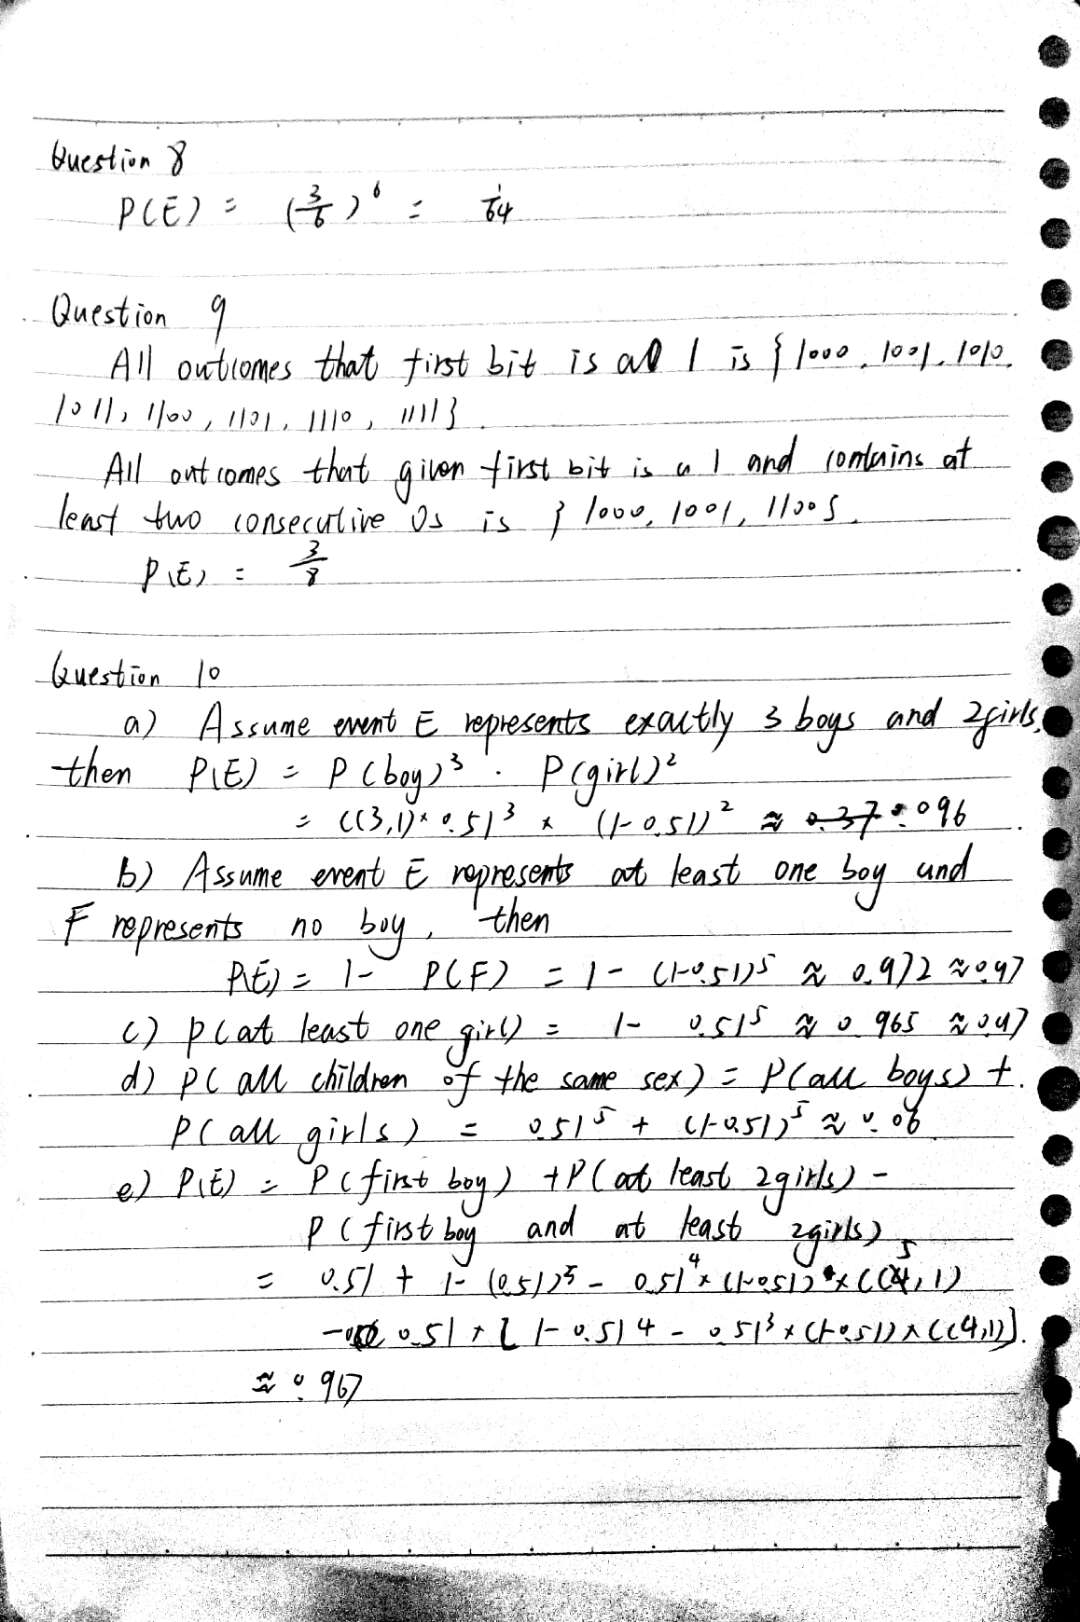 Question 8
P(E) = (3/6)^6 = 1/64
Question 9
All outcomes that first bit is a 1 is {1000, 1001, 1010,
1011, 1100, 1101, 1110, 1111}.
All outcomes that given first bit is a 1 and contains at
least two consecutive 0s is {1000, 1001, 1100}.
P(E) = 3/8
Question 10
a) Assume event E represents exactly 3 boys and 2girls,
then P(E) = P(boy)^3 · P(girl)^2
= C(3,1) × 0.51^3 × (1-0.51)^2 ≈ 0.096
b) Assume event E represents at least one boy and
F represents no boy, then
P(E) = 1 - P(F) = 1 - (1-0.51)^5 ≈ 0.972 ≈ 0.97
c) P(at least one girl) = 1 - 0.51^5 ≈ 0.965 ≈ 0.97
d) P(all children of the same sex) = P(all boys) +
P(all girls) = 0.51^5 + (1-0.51)^5 ≈ 0.06
e) P(E) = P(first boy) + P(at least 2girls) -
P(first boy and at least 2girls)
= 0.51 + 1 - (0.51)^5 - 0.51^4 × (1-0.51) × C(5,1)
- 0.51 × [1 - 0.51^4 - 0.51^3 × (1-0.51) × C(4,1)].
≈ 0.967